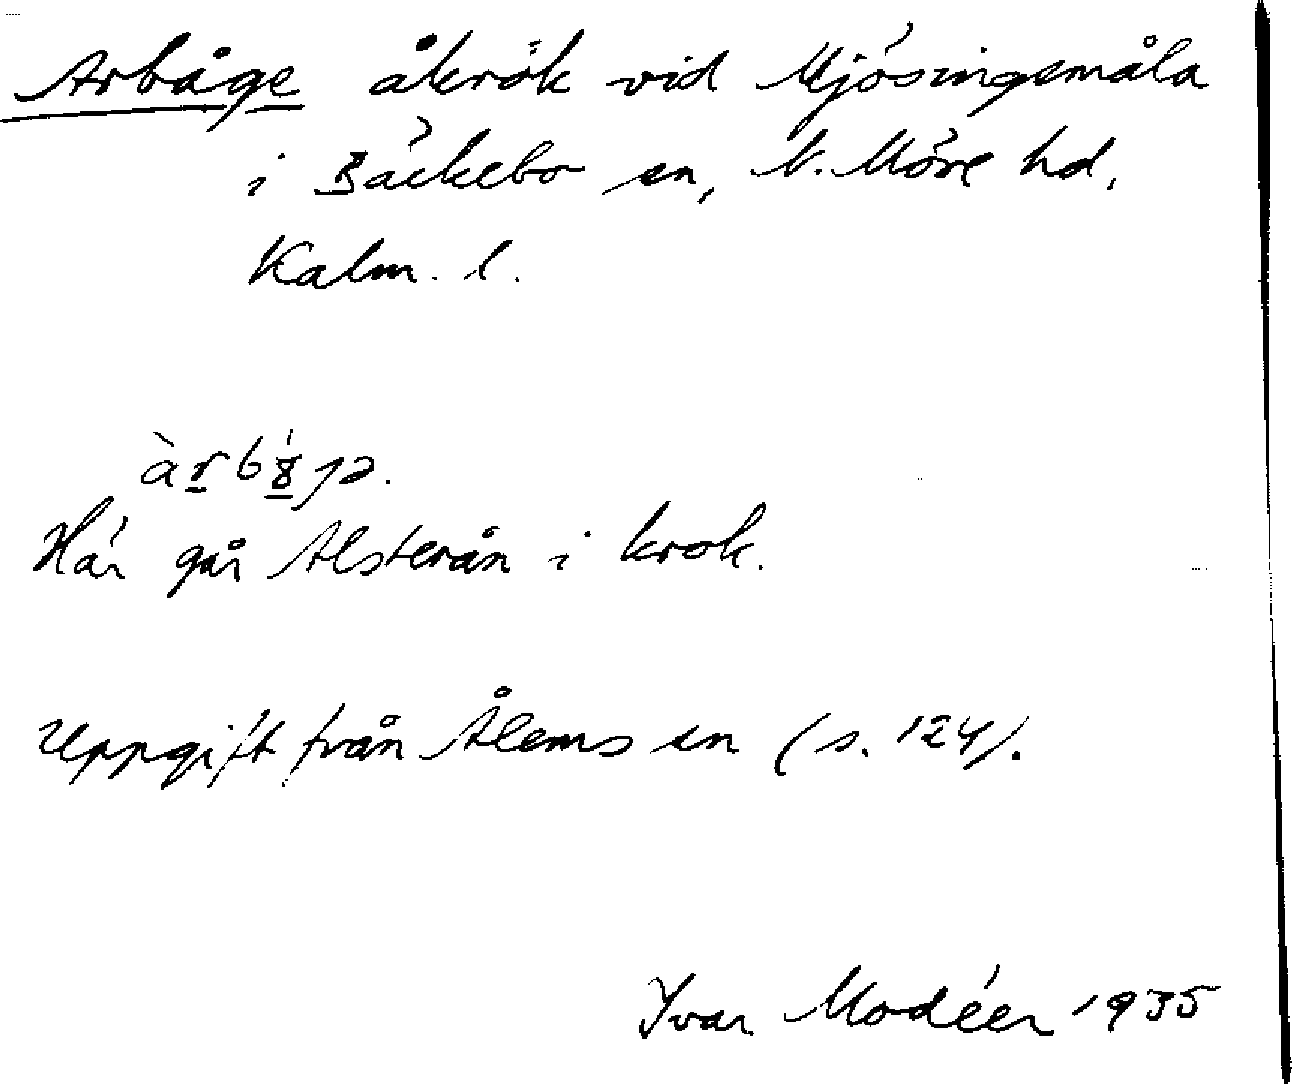 Arbåge åkrök vid Mjösingsmåla
i Bäckebo sn, N. Möre hd.
Kalm. l.
Här går Alsterån i krok.
Uppgift från Ålems sn (s. 124).
Ivar Modéer 1935